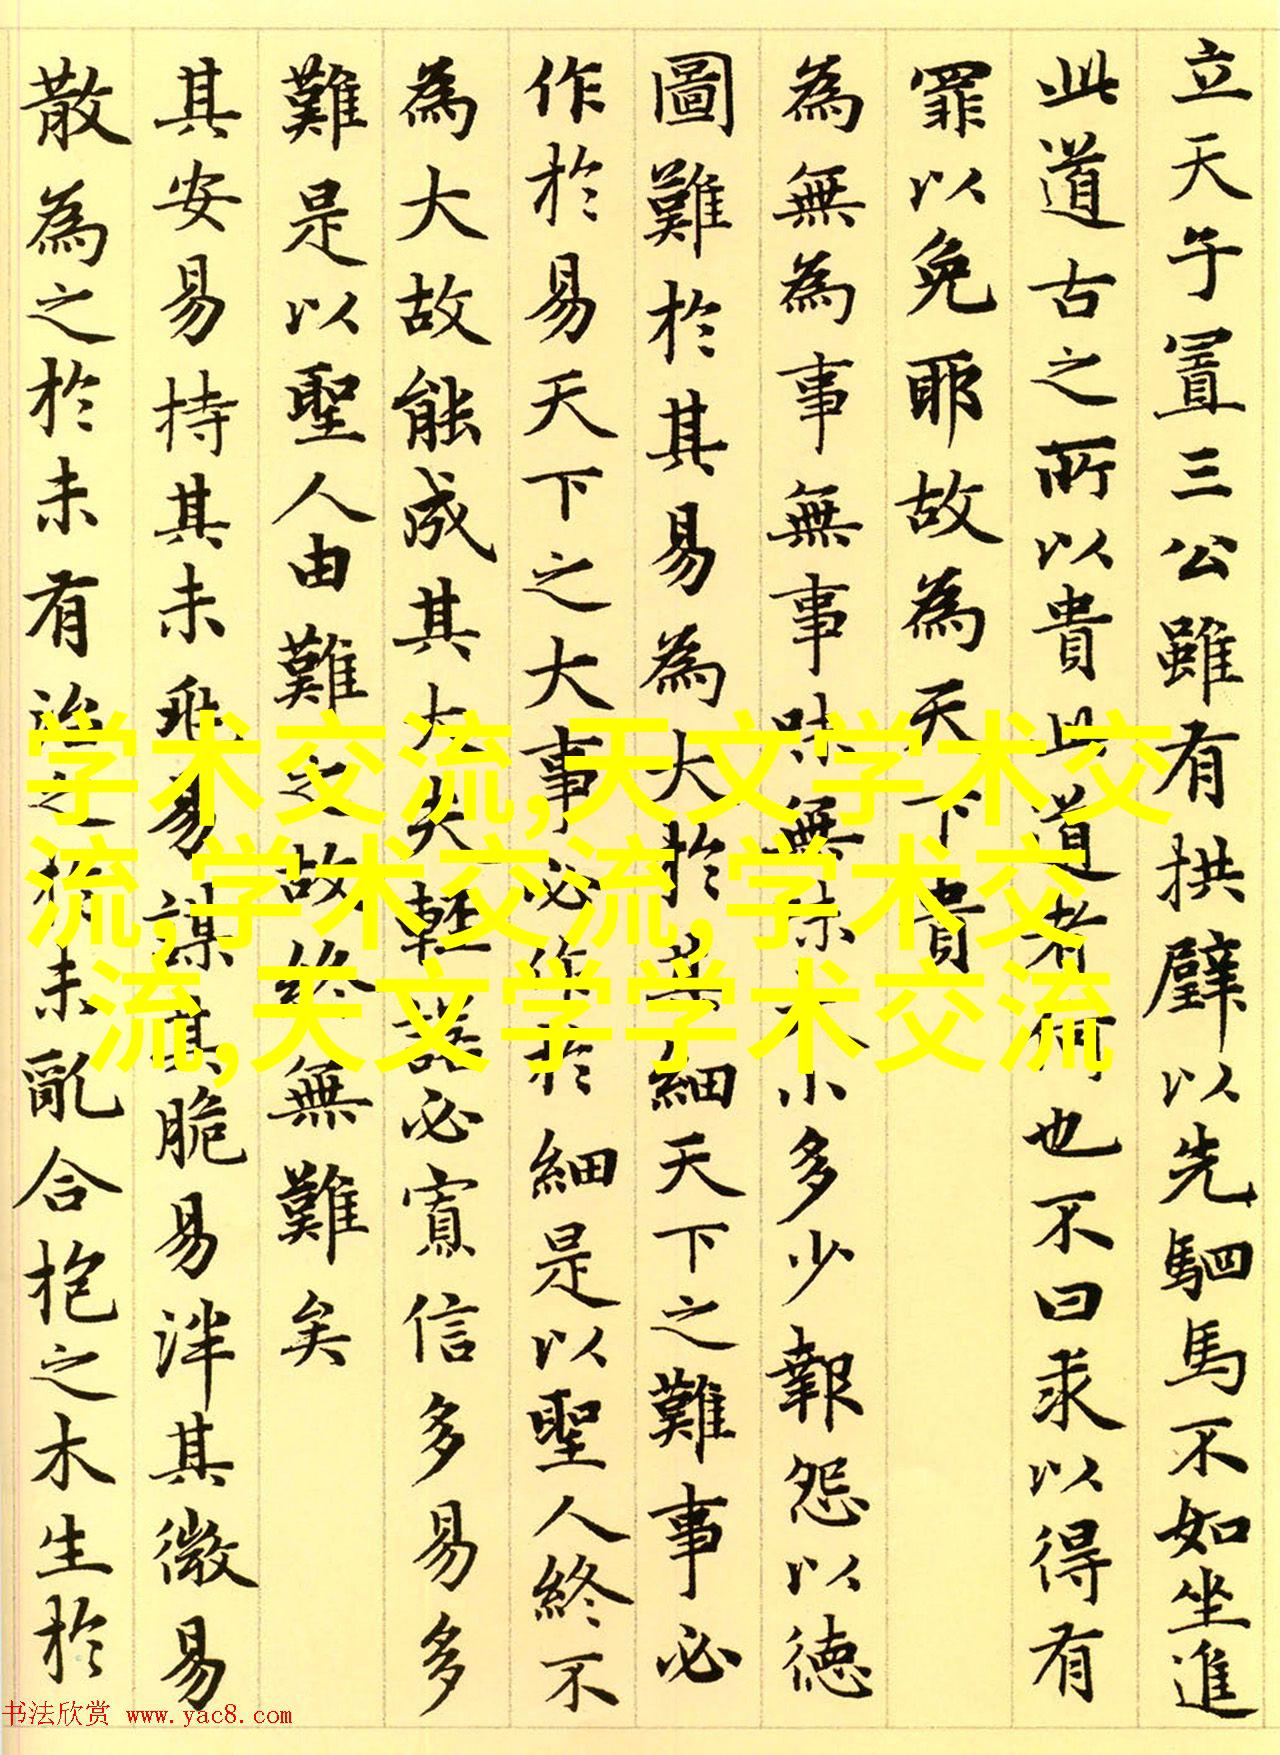 立天子置三公雖有拱璧以先駟馬不如坐進
此道古之所以貴此道者何也不曰求以得有
罪以免耶故為天下貴
為無為事無事味無味大小多少報怨以德
圖難於其易為大於其細天下之難事必
作於易天下之大事必作於細是以聖人終不
為大故能成其大夫輕諾必寡信多易多
難是以聖人由難之故終無難矣
其安易持其未兆易謀其脆易泮其微易
散為之於未有治之於未亂合抱之木生於
学术交流,天文学术交
流,学术交流,学术交
流,天文学学术交流
书法欣赏 www.yac8.com